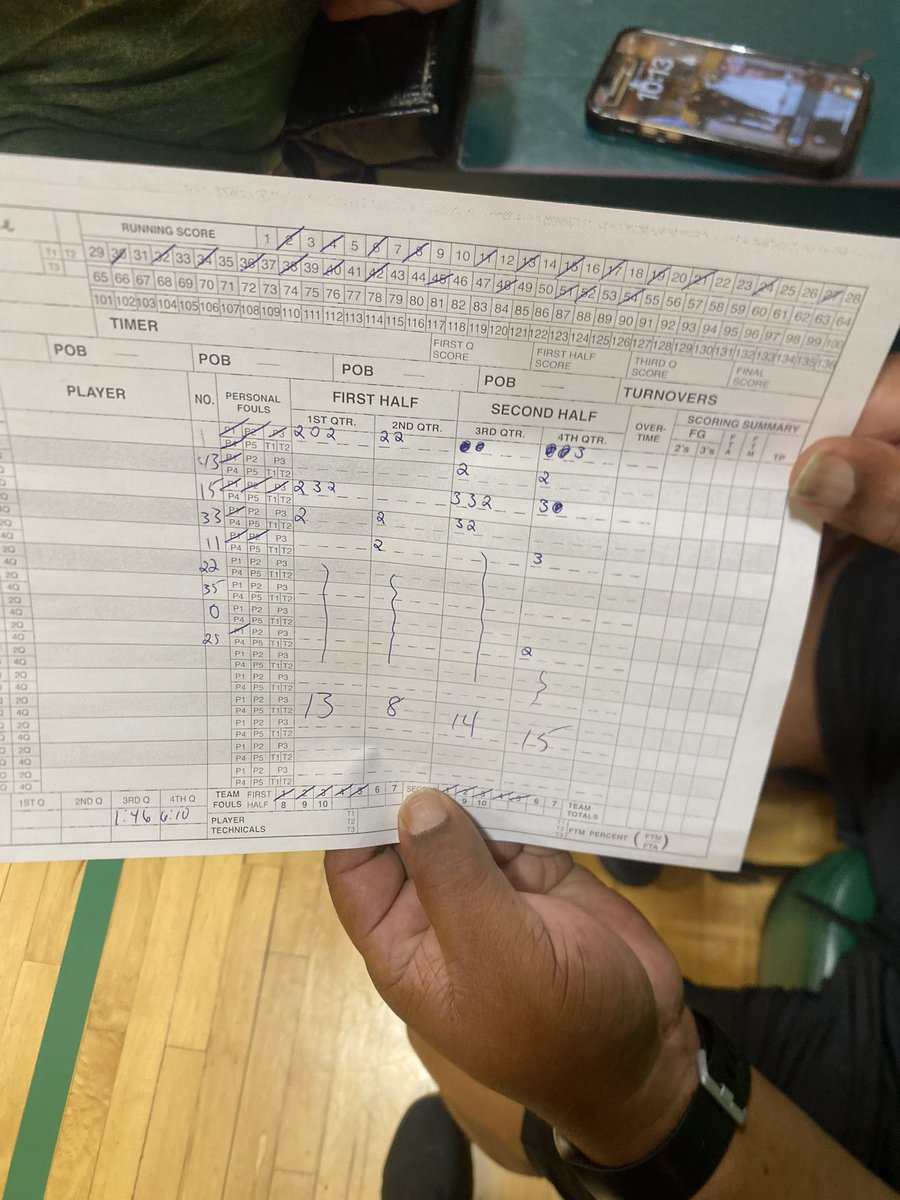 10:13
RUNNING SCORE 1 2 3 4 5 6 7 8 9 10 11 12 13 14 15 16 17 18 19 20 21 22 23 24 25 26 27 28
T1 T2 29 30 31 32 33 34 35 36 37 38 39 40 41 42 43 44 45 46 47 48 49 50 51 52 53 54 55 56 57 58 59 60 61 62 63 64
T3 65 66 67 68 69 70 71 72 73 74 75 76 77 78 79 80 81 82 83 84 85 86 87 88 89 90 91 92 93 94 95 96 97 98 99 100
101 102 103 104 105 106 107 108 109 110 111 112 113 114 115 116 117 118 119 120 121 122 123 124 125 126 127 128 129 130 131 132 133 134 135 136
TIMER FIRST Q SCORE FIRST HALF SCORE THIRD Q SCORE FINAL SCORE
POB POB POB POB TURNOVERS
PLAYER NO. PERSONAL FOULS FIRST HALF SECOND HALF OVER-TIME SCORING SUMMARY
1ST QTR. 2ND QTR. 3RD QTR. 4TH QTR. FG 2's 3's FTA FTM TP
1 P1 P2 P3 202 22 3
P4 P5 T1 T2
43 P1 P2 P3 2 2
P4 P5 T1 T2
15 P1 P2 P3 232 332 3
P4 P5 T1 T2
33 P1 P2 P3 2 2 32
P4 P5 T1 T2
11 P1 P2 P3 2 3
4Q P4 P5 T1 T2
2Q 22 P1 P2 P3
4Q P4 P5 T1 T2
2Q 35 P1 P2 P3
4Q P4 P5 T1 T2
2Q 0 P1 P2 P3
4Q P4 P5 T1 T2
2Q 25 P1 P2 P3 2
4Q P4 P5 T1 T2
2Q P1 P2 P3
4Q P4 P5 T1 T2
2Q P1 P2 P3
4Q P4 P5 T1 T2
2Q P1 P2 P3 13 8 14 15
4Q P4 P5 T1 T2
2Q P1 P2 P3
4Q P4 P5 T1 T2
2Q P1 P2 P3
4Q P4 P5 T1 T2
2Q P1 P2 P3
4Q P4 P5 T1 T2
1ST Q 2ND Q 3RD Q 4TH Q TEAM FOULS FIRST HALF 1 2 3 4 5 6 7 8 9 10 1 2 3 4 5 6 7 9 10 TEAM TOTALS
1:46 6:10 PLAYER TECHNICALS T1 T2 T3 T1 T2 T3 FTM PERCENT (FTM FTA)